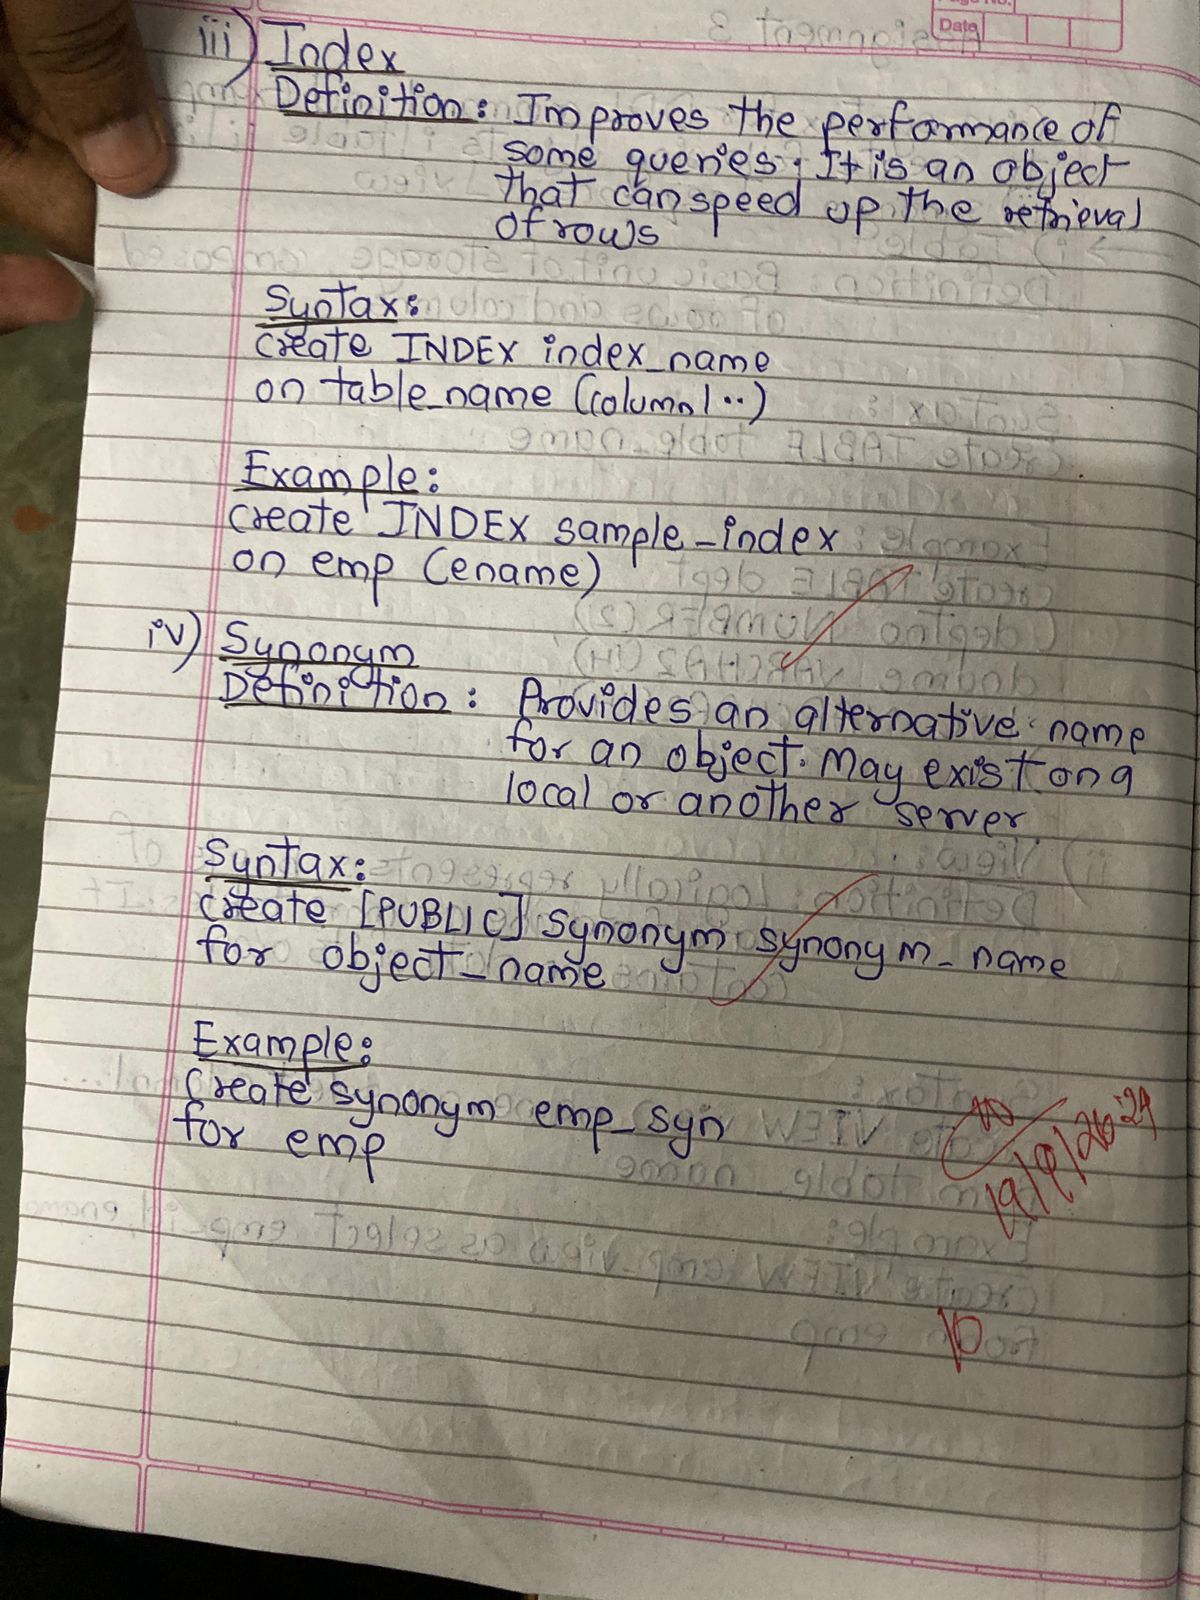 Date
iii) Index
Definition: Improves the performance of
some queries. It is an object
that can speed up the retrieval
of rows
Syntax:
create INDEX index_name
on table_name (column1..)
Example:
create INDEX sample_index
on emp (ename)
iv) Synonym
Definition: Provides an alternative name
for an object. May exist on a
local or another server
Syntax:
create [PUBLIC] Synonym synonym_name
for object_name
Example:
Create synonym emp_syn
for emp
10